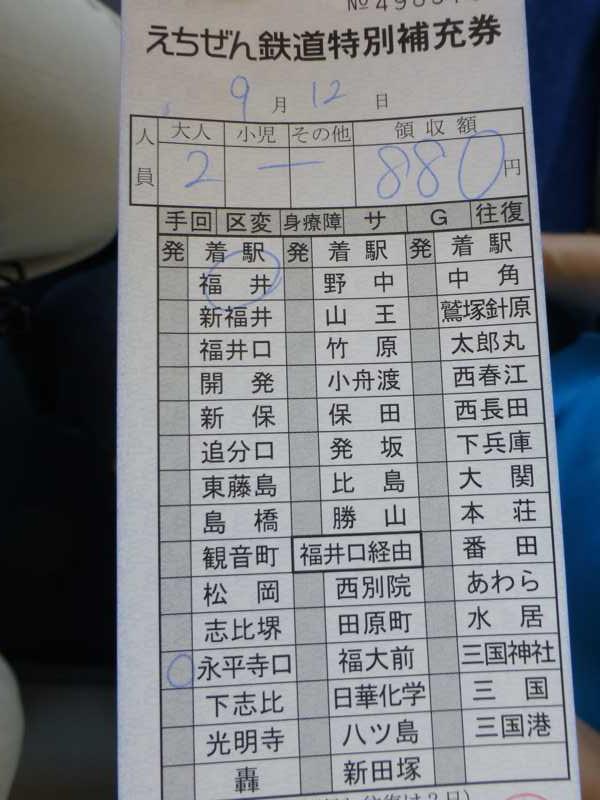 えちぜん鉄道特別補充券
9月12日
人員 大人 小児 その他 領収額
2 ― 880円
手回 区変 身療障 サ G 往復
発 着駅 発 着駅 発 着駅
福井 野中 中角
新福井 山王 鷲塚針原
福井口 竹原 太郎丸
開発 小舟渡 西春江
新保 保田 西長田
追分口 発坂 下兵庫
東藤島 比島 大関
島橋 勝山 本荘
観音町 福井口経由 番田
松岡 西別院 あわら
志比堺 田原町 水居
永平寺口 福大前 三国神社
下志比 日華化学 三国
光明寺 八ツ島 三国港
轟 新田塚